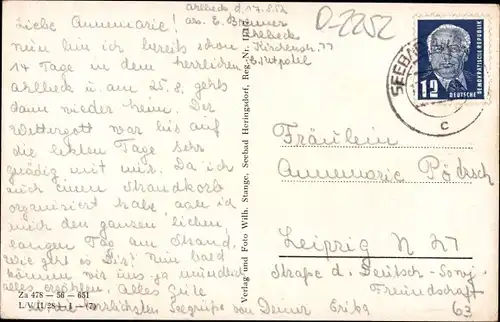 Ahlbeck d. 17.8.52
Liebe Annemarie!
abs. E. Brenner
Ahlbeck
Kirchenstr. 11
b. Putpohl
D-2252
Nun bin ich bereits schon
14 Tage in dem herrlichen
Ahlbeck u. am 25.8. gehts
dann wieder heim. Der
Wettergott war bis auf
die letzten Tage sehr
gnädig mit mir. Da ich
auch einen Strandkorb
organisiert habe, aale ich
mich den ganzen lieben,
langen Tag am Strand.
Wie geht es Dir? Nun bald
können wir uns ja mündlich
alles erzählen. Alles Gute
und herzlichsten Seegrüße von Deiner Erika
Za 478 – 56 – 651
L/V II/28/1 – 1 – (7)
Verlag und Foto Wilh. Stange, Seebad Heringsdorf, Reg.-Nr.
SEEBAD
c
12
DEUTSCHE
DEMOKRATISCHE REPUBLIK
Fräulein
Annemarie
Leipzig N 27
Straße d. Deutsch-Sowj.
Freundschaft
63